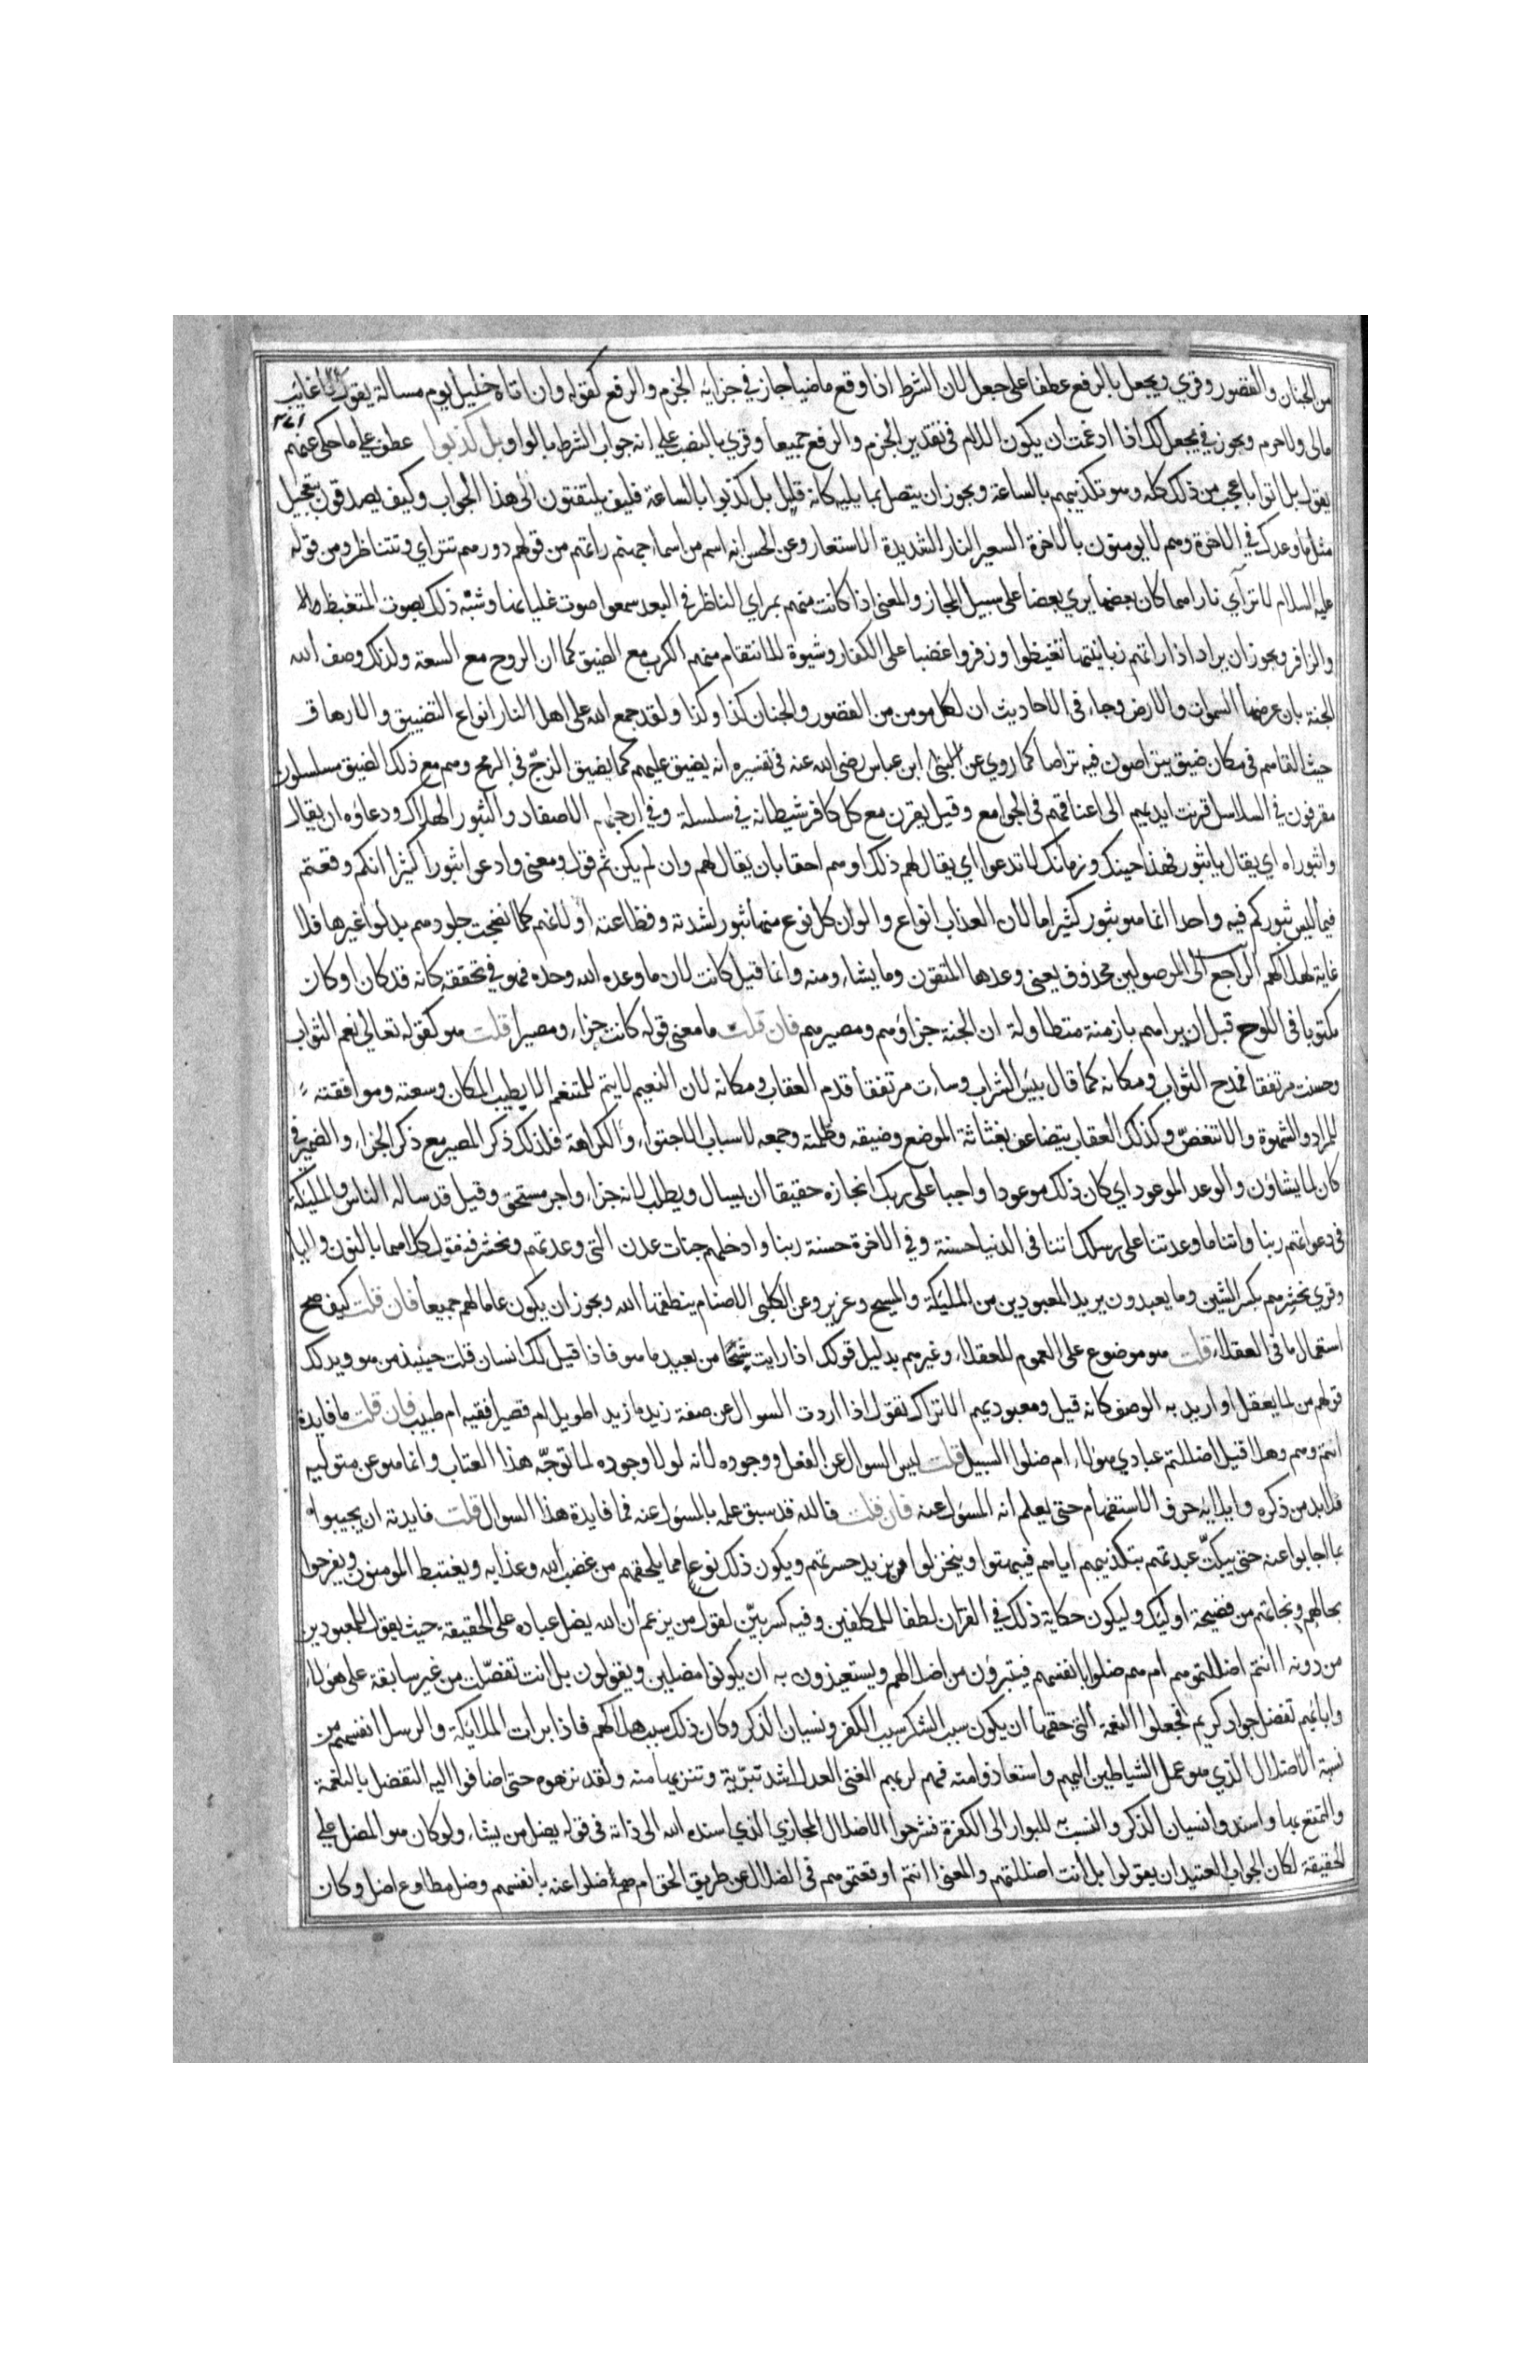 من الجنان والقصور وقري ويجعل بالرفع عطفا على جعل لان الشرط اذا وقع ماضيا جاز في جزايه الجزم والرفع كقوله وان اتاه خليل يوم مسالة يقول لا غايب
مالي ولا حرم ويجوز في يجعل لك اذا ادغمت ان يكون اللام في تقدير الجزم والرفع جميعا وقري بالنصب على انه جواب الشرط بالواو بل كذبوا عطف على ما حكى عنهم
يقول بل اتوا باعجب من ذلك كله وهو تكذيبهم بالساعة ويجوز ان يتصل بما يليه كانه قيل بل كذبوا بالساعة فكيف يلتفتون الى هذا الجواب وكيف يصدقون بتعجيل
مثل ما وعدك في الاخرة وهم لا يومنون بالاخرة السعير النار الشديدة الاستعار وعن الحسن انه اسم من اسماء جهنم راتهم من قولهم دورهم تتراي وتتناظر ومن قوله
عليه السلام لا تتراي ناراهما كان بعضها يري بعضا على سبيل المجاز والمعنى اذا كانت منهم بمراي الناظر في البعد سمعوا صوت غليانها وشبه ذلك بصوت المتغيظ
والزافر ويجوز ان يراد اذا راتهم زبانيتها تغيظوا وزفروا غضبا على الكفار وشهوة للانتقام منهم الكرب مع الضيق كما ان الروح مع السعة ولذلك وصف الله
الجنة بان عرضها السموات والارض وجاء في الاحاديث ان لكل مومن من القصور والجنان كذا وكذا ولقد جمع الله على اهل النار انواع التضييق والارهاق
حيث القاهم في مكان ضيق يتراصون فيه تراصا كما روي عن ابن عباس رضى الله عنه في تفسيره انه يضيق عليهم كما يضيق الزج في الرمح وهم مع ذلك الضيق مسلسلون
مقرنون في السلاسل قرنت ايديهم الى اعناقهم في الجوامع وقيل يقرن مع كل كافر شيطانه في سلسلة وفي ارجلهم الاصفاد والثبور الهلاك ودعاؤه ان يقال
واثبوراه اي يقال يا ثبور فهذا حينك وزمانك لا تدعوا اي يقال لهم ذلك او هم احقا بان يقال لهم وان لم يكن ثم قول ومعنى وادعوا ثبورا كثيرا انكم وقعتم
فيما ليس ثبوركم فيه واحدا انما هو ثبور كثير اما لان العذاب انواع والوان كل نوع منها ثبور لشدته وفظاعته او لانهم كلما نضجت جلودهم بدلوا غيرها فلا
غاية لهلاكهم الراجع الى الموصولين محذوف يعنى وعدها المتقون وما يشاءونه وانما قيل كانت لان ما وعده الله وحده فهو في تحققه كانه قد كان او كان
مكتوبا في اللوح قبل ان براهم بازمنة متطاولة ان الجنة جزاؤهم ومصيرهم فان قلت ما معنى قوله كانت جزاء ومصيرا قلت هو كقوله تعالى نعم الثواب
وحسنت مرتفقا فمدح الثواب ومكانه كما قال بئس الشراب وساءت مرتفقا قدم العقاب ومكانه لان النعيم لا يتم للمتنعم الا بطيب المكان وسعته وموافقته
للمراد والشهوة والا تنغص وكذلك العقاب يتضاعف بغثاثة الموضع وضيقه وظلمته وجمعه لاسباب الاجتواء والكراهة فلذلك ذكر المصير مع ذكر الجزاء والضمير في
كان لما يشاؤن والوعد الموعود اي كان ذلك موعودا واجبا على ربك انجازه حقيقا ان يسال ويطلب لانه جزاء واجر مستحق وقيل قد ساله الناس والمليكة
في دعواتهم ربنا واتنا ما وعدتنا على رسلك اتنا في الدنيا حسنة وفي الاخرة حسنة ربنا وادخلهم جنات عدن التي وعدتهم ونحشرهم فنقول كلاهما بالنون والياء
وقري نحشرهم بكسر الشين وما يعبدون يريد المعبودين من المليكة والمسيح وعزير وعن الكلبي الاصنام ينطقها الله ويجوز ان يكون عاما لهم جميعا فان قلت كيف صح
استعمال ما في العقلاء قلت هو موضوع على العموم للعقلاء وغيرهم بدليل قولك اذا رايت شبحا من بعيد ما هو فاذا قيل لك انسان قلت حينيذ من هو ويدلك
قولهم من لما يعقل او اريد به الوصف كانه قيل ومعبوديهم الا تراك تقول اذا اردت السوال عن صفة زيد ما زيد اطويل ام قصير افقيه ام طبيب فان قلت ما فايدة
انتم وهم وهلا قيل اضللتم عبادي هؤلاء ام ضلوا السبيل قلت ليس السوال عن الفعل ووجوده لانه لولا وجوده لما توجه هذا العتاب وانما هو عن متوليه
فلا بد من ذكره وايلايه حرف الاستفهام حتى يعلم انه المسؤل عنه فان قلت فالله قد سبق علمه بالمسؤل عنه فما فايدة هذا السوال قلت فايدته ان يجيبوا
بما اجابوا عنه حتى يبكت عبدتهم بتكذيبهم اياهم فيبهتوا وينخزلوا ويزيد حسرتهم ويكون ذلك نوعا مما يلحقهم من غضب الله وعذابه ويغتبط المومنون ويفرحوا
بحالهم ونجاتهم من فضيحة اوليك وليكون حكاية ذلك في القران لطفا للمكلفين وفيه كسر بين لقول من يزعم ان الله يضل عباده على الحقيقة حيث يقول للمعبودين
من دونه اانتم اضللتموهم ام هم ضلوا بانفسهم فيتبرؤن من اضلالهم ويستعيذون به ان يكونوا مضلين ويقولون بل انت تفضلت من غير سابقة على هؤلاء
واباءهم تفضل جواد كريم فجعلوا النعمة التي حقها ان يكون سبب الشكر سبب الكفر ونسيان الذكر وكان ذلك سبب هلاكهم فاذا برات الملايكة والرسل انفسهم من
نسبة الاضلال الذي هو عمل الشياطين اليهم واستعاذوا منه فهم لربهم الغنى العدل اشد تبرية وتنزيها منه ولقد نزهوه حتى اضافوا اليه التفضل بالنعمة
والتمتع بها واسندوا نسيان الذكر والتسبب به للبوار الى الكفرة فشرحوا الاضلال المجازي الذي اسنده الله الى ذاته في قوله يضل من يشاء ولو كان هو المضل على
الحقيقة لكان الجواب العتيد ان يقولوا بل انت اضللتهم والمعنى اانتم اوقعتموهم في الضلال عن طريق الحق ام هم ضلوا عنه بانفسهم وضل مطاوع اضل وكان